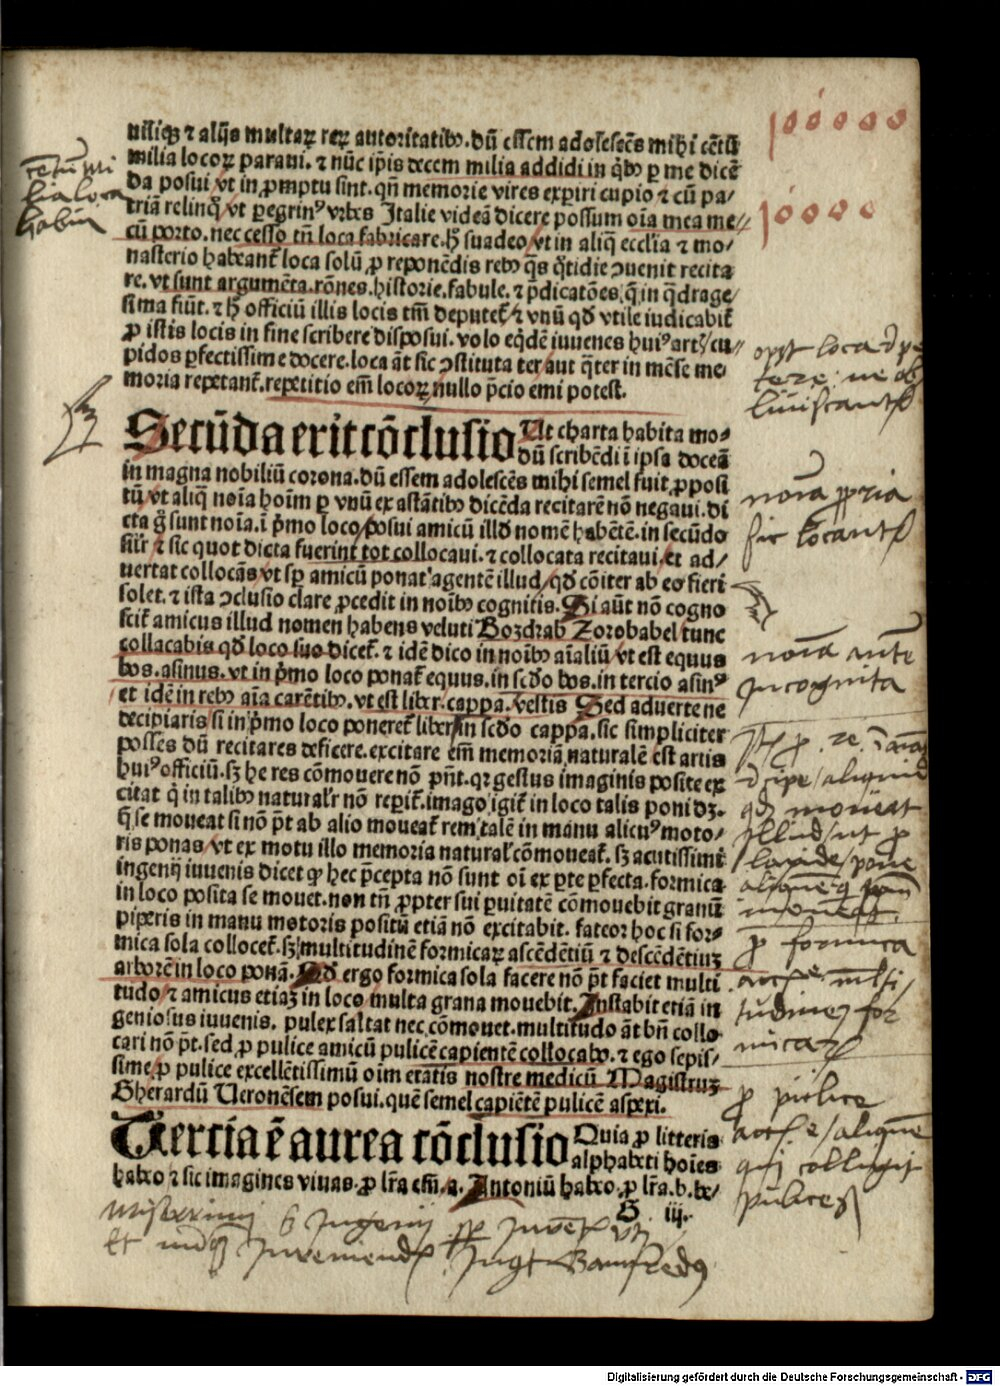 uiliꝫ ⁊ alijs multaꝝ reꝝ autoritatibꝰ. dū essem adolescēs mihi cētū
milia locoꝝ paraui. ⁊ nūc ip̄is decem milia addidi in q̄bꝰ ꝑ me dicē
da posui vt in ꝓmptu sint. qn̄ memorie vires exꝑiri cupio ⁊ cū pa/
triā relinq̄ vt ꝑegrinꝰ vrbes Italie videā dicere possum oīa mea me/
cū porto. nec cesso tn̄ loca fabricare. hꝫ suadeo vt in aliq̄ eccl'ia ⁊ mo/
nasterio habeant᷑ loca solū ꝓ reponēdis rebꝰ q̄s q̄tidie ꝯuenit recita
re. vt sunt argumēta. rōnes. historie. fabule. ⁊ p̄dicatōes, q̄ in q̄drage/
sima fiūt. ⁊ hꝫ officiū illis locis tm̄ deputet᷑ ⁊ vnū qd̄ vtile iudicabit᷑
ꝓ istis locis in fine scribere disposui. volo eq̄dē iuuenes huiꝰ artꝭ cu/
pidos ꝑfectissime docere. loca āt sic ꝯstituta ter aut q̄ter in mēse me
moria repetant᷑. repetitio em̄ locoꝝ nullo p̄cio emi potest.
Secūda erit cōclusio Vt charta habita mo/
dū scribēdi ī ipsa doceā
in magna nobiliū corona. dū essem adolescēs mihi semel fuit ꝓposi
tū vt aliq̄ noīa hoīm ꝑ vnū ex astātibꝰ dicēda recitarē nō negaui. di
cta g̊ sunt noīa. ī p̄mo loco posui amicū illd̄ nomē habētē. in secūdo
sil'r ⁊ sic quot dicta fuerint tot collocaui. ⁊ collocata recitaui. et ad/
uertat collocās vt sꝑ amicū ponat agentē illud qd̄ cōiter ab eo fieri
solet. ⁊ ista ꝯclusio clare ꝓcedit in noībꝰ cognitis. Si aūt nō cogno
scit᷑ amicus illud nomen habens veluti Bozdrab Zorobabel tunc
collacabis qd̄ loco suo dicet᷑. ⁊ idē dico in noībꝰ aīaliū vt est equus
bos. asinus. vt in p̄mo loco ponat᷑ equus. in scd̄o bos. in tercio asinꝰ
et idē in rebꝰ aīa carētibꝰ. vt est liber. cappa. vestis Sed aduerte ne
decipiaris si in p̄mo loco poneret᷑ liber in scd̄o cappa. sic simpliciter
posses dū recitares deficere. excitare em̄ memoriā naturalē est artis
huiꝰ officiū. sꝫ he res cōmouere nō pn̄t. qꝛ gestus imaginis posite ex
citat q̄ in talibꝰ natural'r nō reꝑit᷑. imago igit᷑ in loco talis poni dꝫ.
q̄ se moueat si nō p̄t ab alio moueat᷑ rem talē in manu alicuꝰ moto/
ris ponas vt ex motu illo memoria natural' cōmoueat᷑. sꝫ acutissimi
ingenij iuuenis dicet ꝙ hec p̄cepta nō sunt oī ex ꝑte ꝑfecta. formica
in loco posita se mouet. non tn̄ ꝓpter sui ꝑuitatē cōmouebit granū
piperis in manu motoris positū etiā nō excitabit. fateor hoc si for/
mica sola collocet᷑. sꝫ multitudinē formicaꝝ ascēdētiū ⁊ descēdētiuꝫ
arborē in loco ponā. Qd̄ ergo formica sola facere nō p̄t faciet multi
tudo ⁊ amicus etiaꝫ in loco multa grana mouebit. Instabit etiā in
geniosus iuuenis. pulex saltat nec cōmouet. multitudo āt bn̄ collo
cari nō p̄t. sed ꝓ pulice amicū pulicē capientē collocabo. ⁊ ego sepis/
sime ꝓ pulice excellētissimū oīm etatis nostre medicū Magistruꝫ
Gherardū Ueronēsem posui. quē semel capiētē pulicē aspexi.
Tercia ē aurea cōclusio Quia ꝓ litteris
alphabeti hoīes
habeo ⁊ sic imagines viuas. ꝓ lr̄a em̄ .a. Antoniū habeo. ꝓ lr̄a .b. be/
B iij.
cētū mi
lia loca
habui
100000
10000
noīa ꝓpria
sic locant᷑
noīa ante
incognita
qd̄ moueat
illud / ut ꝓ
lapide / pone
ꝓ formica
multi/
tudinē for
micaꝝ
ꝓ pulice
aliquē
qui colligit
pulices